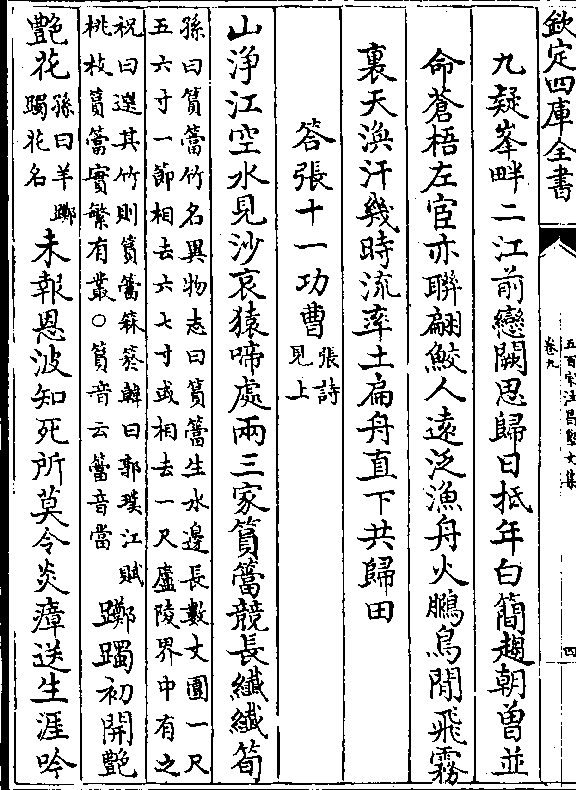 欽定四庫全書
五百家注昌黎文集
卷九
四
九疑峯畔二江前戀闕思歸日抵年白簡趨朝曽並
命蒼梧左宦亦聯翩鮫人遠泛漁舟火鵩鳥閒飛霧
裏天渙汗幾時流率土扁舟直下共歸田
答張十一功曹張詩見上
山浄江空水見沙哀猿啼處兩三家篔簹競長纎纎筍
孫曰篔簹竹名異物志曰篔簹生水邊長數丈圍一尺
五六寸一節相去六七寸或相去一尺廬陵界中有之
祝曰選其竹則篔簹箖箊韓曰郭璞江賦
桃枝篔簹實繁有叢○篔音云簹音當
躑躅初開艷
艷花孫曰羊躑躅花名未報恩波知死所莫令炎瘴送生涯吟